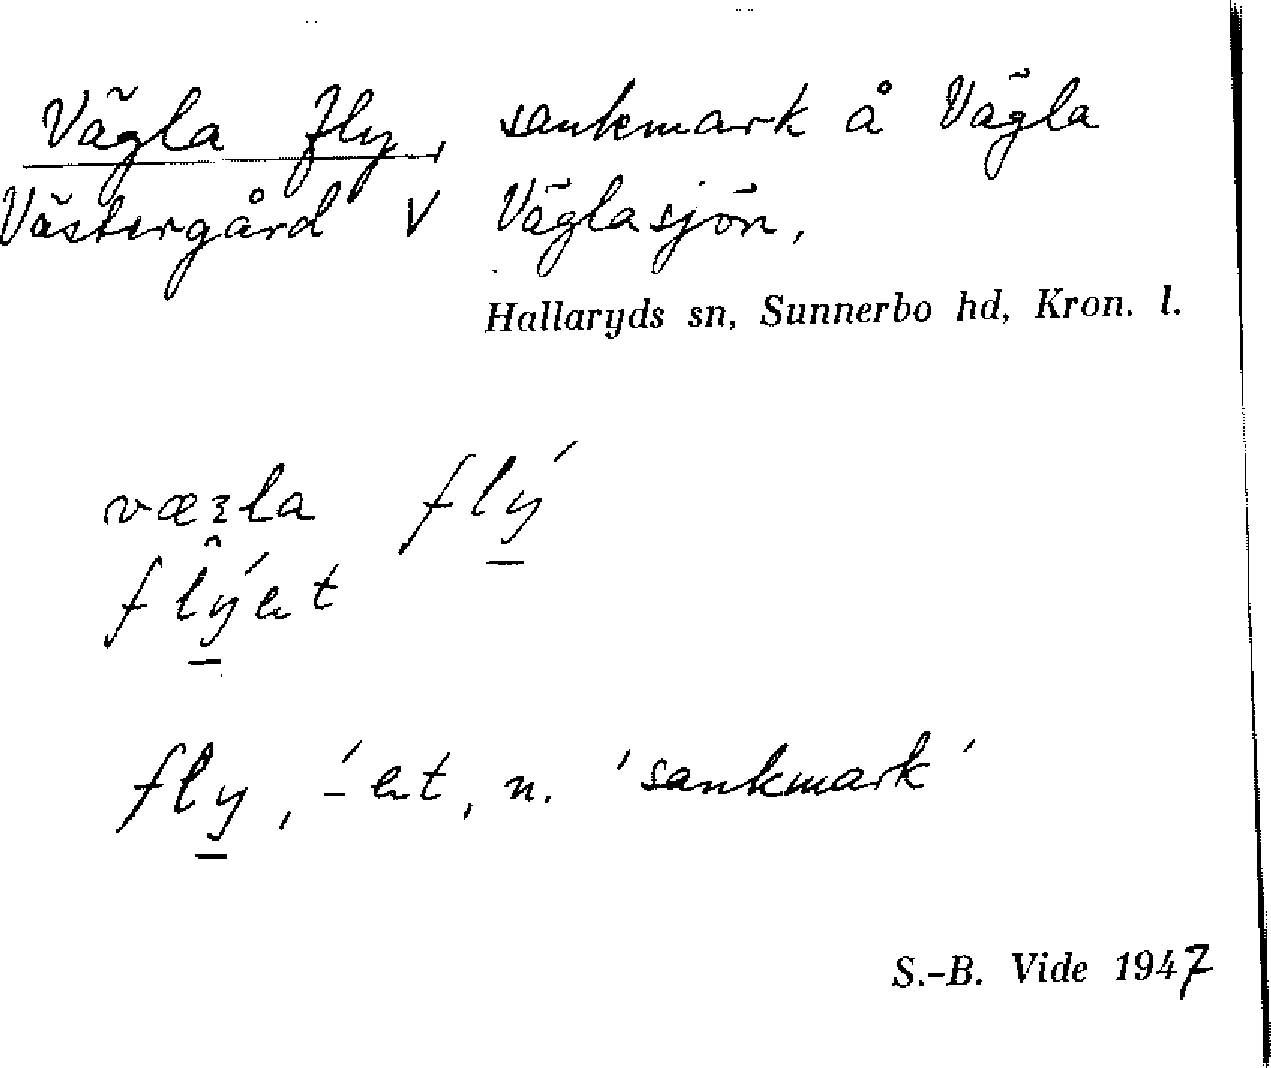 Vägla fly, sankmark å Vägla
Västergård V Väglasjön,
Hallaryds sn, Sunnerbo hd, Kron. l.
væꜿla flý
flýet
fly, -́et, n. 'sankmark'
S.-B. Vide 1947